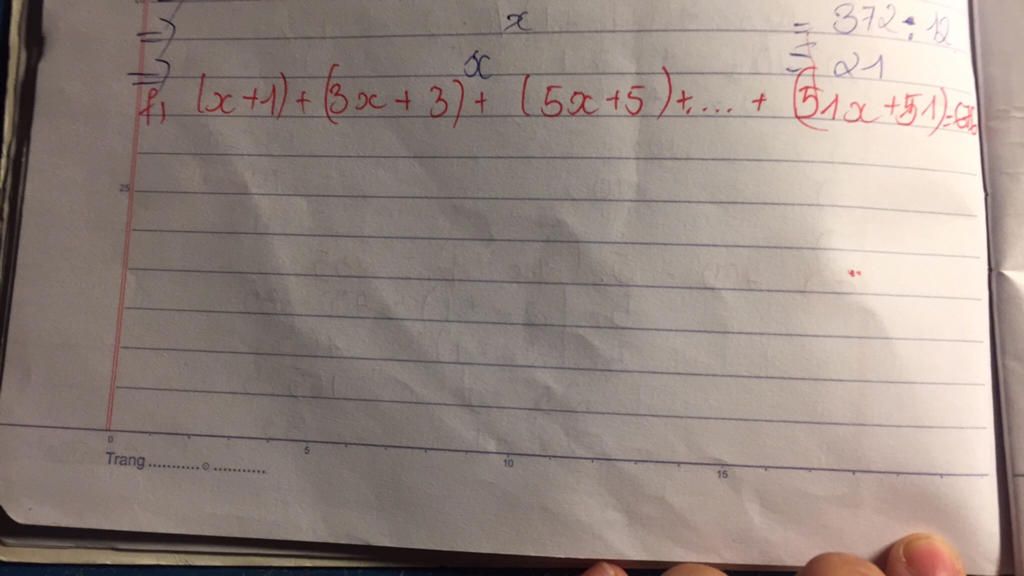 => x = 372 : 12
=> x = 21
f, (x+1) + (3x + 3) + (5x+5) + .... + (51x+51) =
25
0 5 10 15
Trang